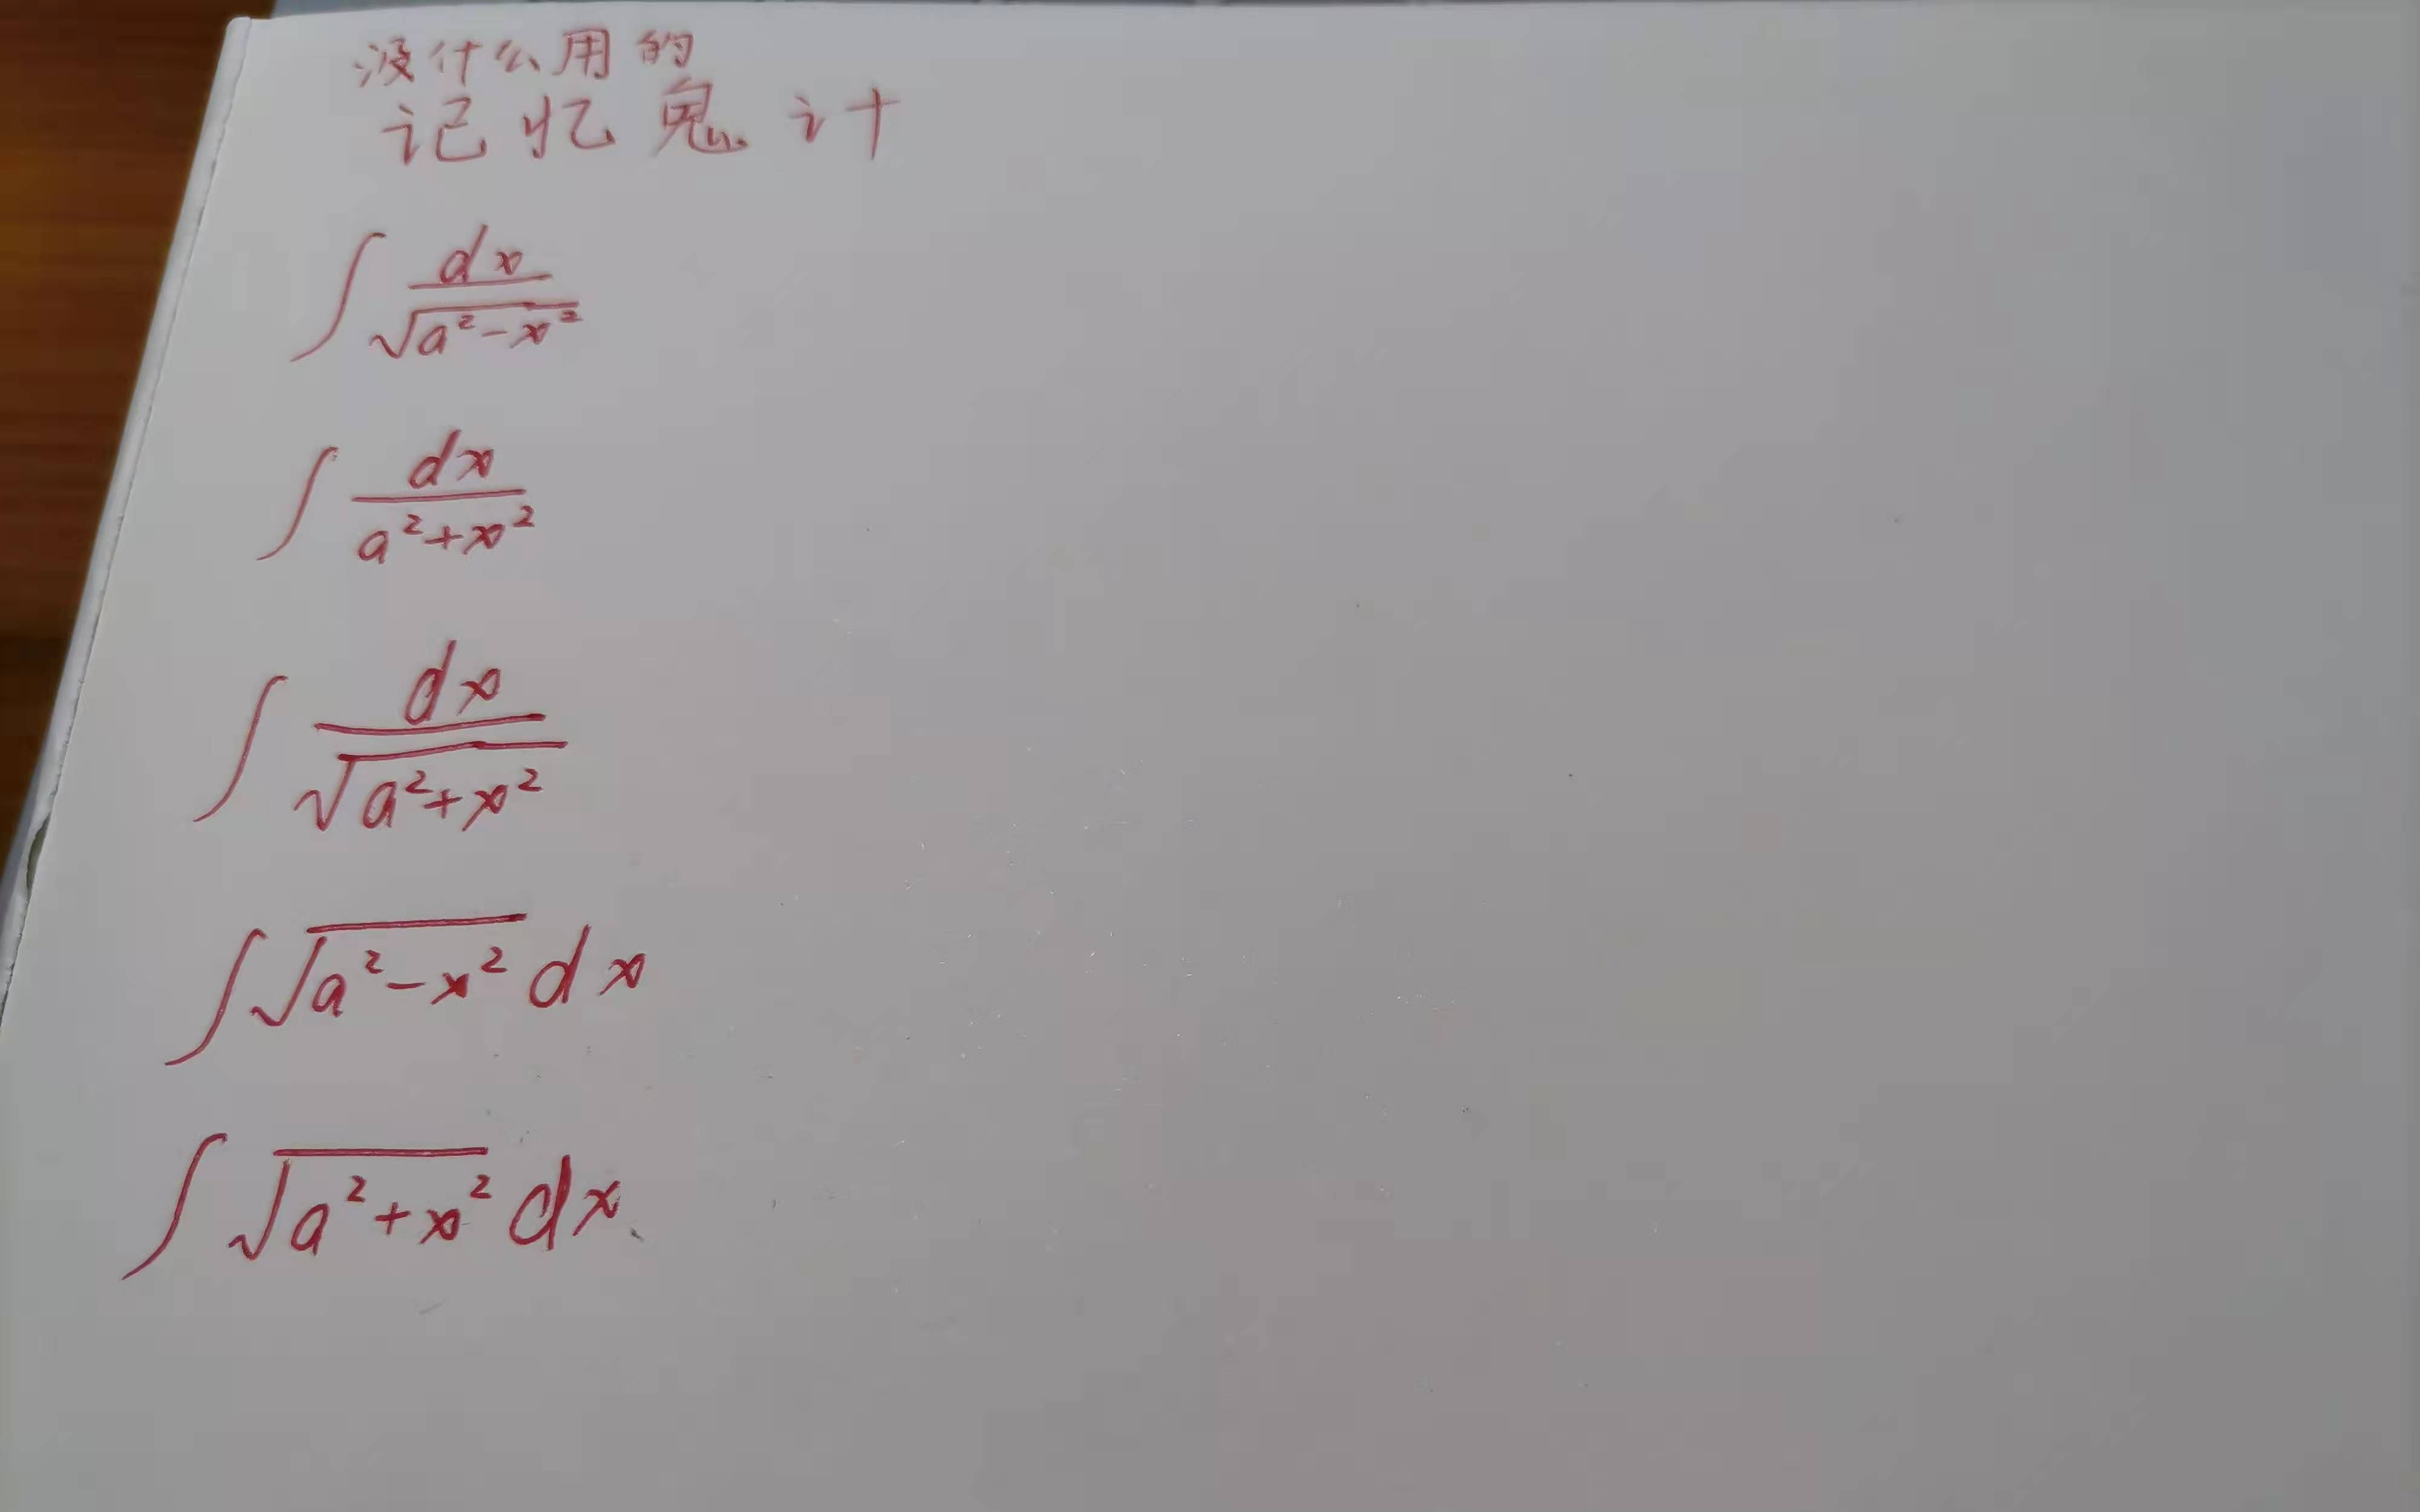 没什么用的
记忆鬼计
∫ dx / √(a²-x²)
∫ dx / (a²+x²)
∫ dx / √(a²+x²)
∫ √(a²-x²) dx
∫ √(a²+x²) dx